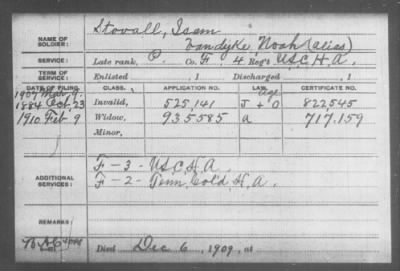 NAME OF SOLDIER: Stovall, Isom
Vandyke, Noah (alias)
SERVICE: Late rank, P. Co. F, 4 Reg't U.S.C.H.A.
TERM OF SERVICE: Enlisted , 1 Discharged , 1
DATE OF FILING. CLASS. APPLICATION NO. LAW. CERTIFICATE NO.
1907 Mar 9. Age
1884 Oct. 23 Invalid, 525,141 J + O 822,545
1910 Feb 9 Widow, 935585 a 717.159
Minor,
ADDITIONAL SERVICES: F - 3 - U.S.C.H.A.
F - 2 - Tenn. Col'd. H. A.
REMARKS:
Died Dec 6, 1909, at